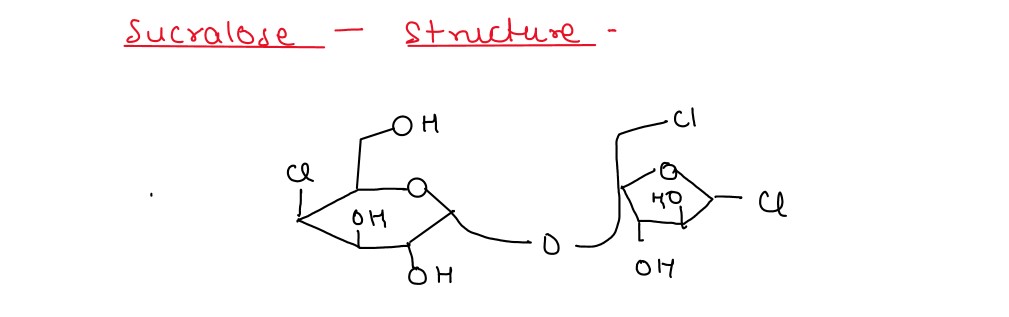 Sucralose - Structure -
OH
Cl
Cl
O
O
HO
Cl
OH
O
OH
OH